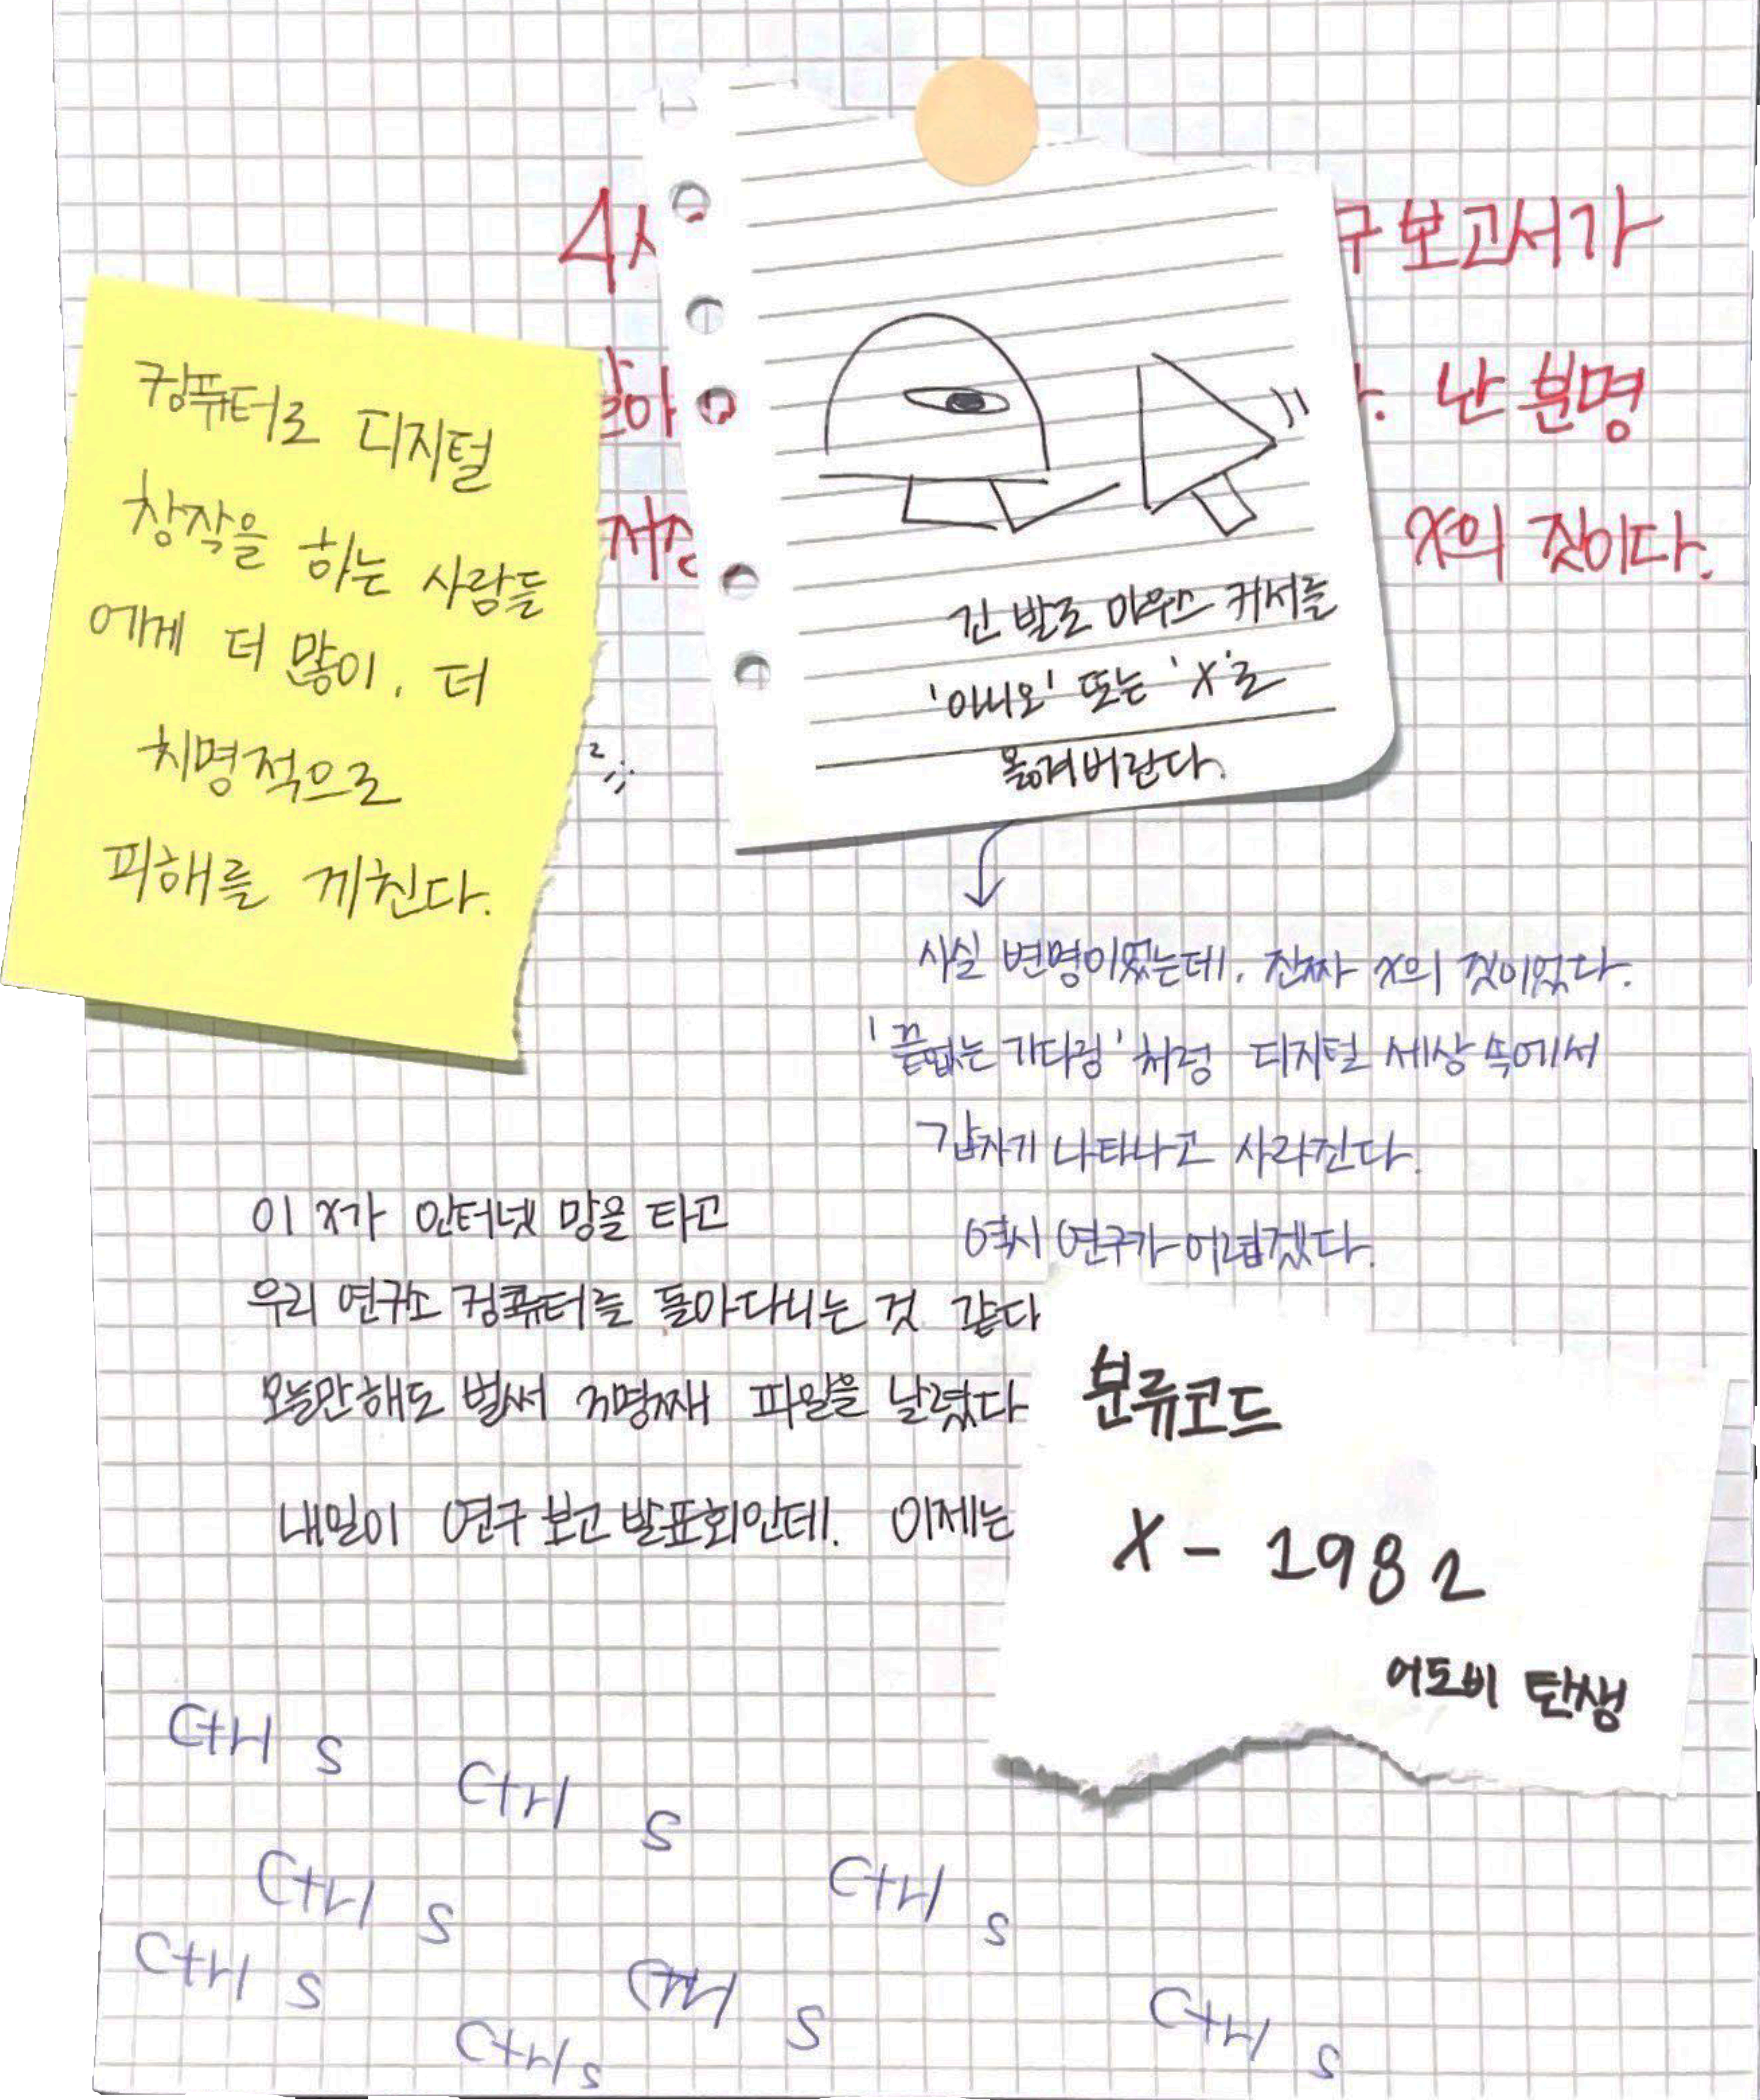 구 보고서가
난 분명
X의 짓이다.
컴퓨터로 디지털
창작을 하는 사람들
에게 더 많이, 더
치명적으로
피해를 끼친다.
긴 발로 마우스 커서를
'아니오' 또는 'X'로
옮겨버린다.
사실 변명이었는데, 진짜 X의 짓이었다.
'끝없는 기다림'처럼 디지털 세상 속에서
갑자기 나타나고 사라진다.
역시 연구가 어렵겠다.
이 X가 인터넷 망을 타고
우리 연구소 컴퓨터를 돌아다니는 것 같다
오늘만해도 벌써 3명째 파일을 날렸다
내일이 연구 보고 발표회인데. 이제는
분류코드
X - 1982
어도비 탄생
Ctrl S
Ctrl S
Ctrl S
Ctrl S
Ctrl S
Ctrl S
Ctrl S
Ctrl S